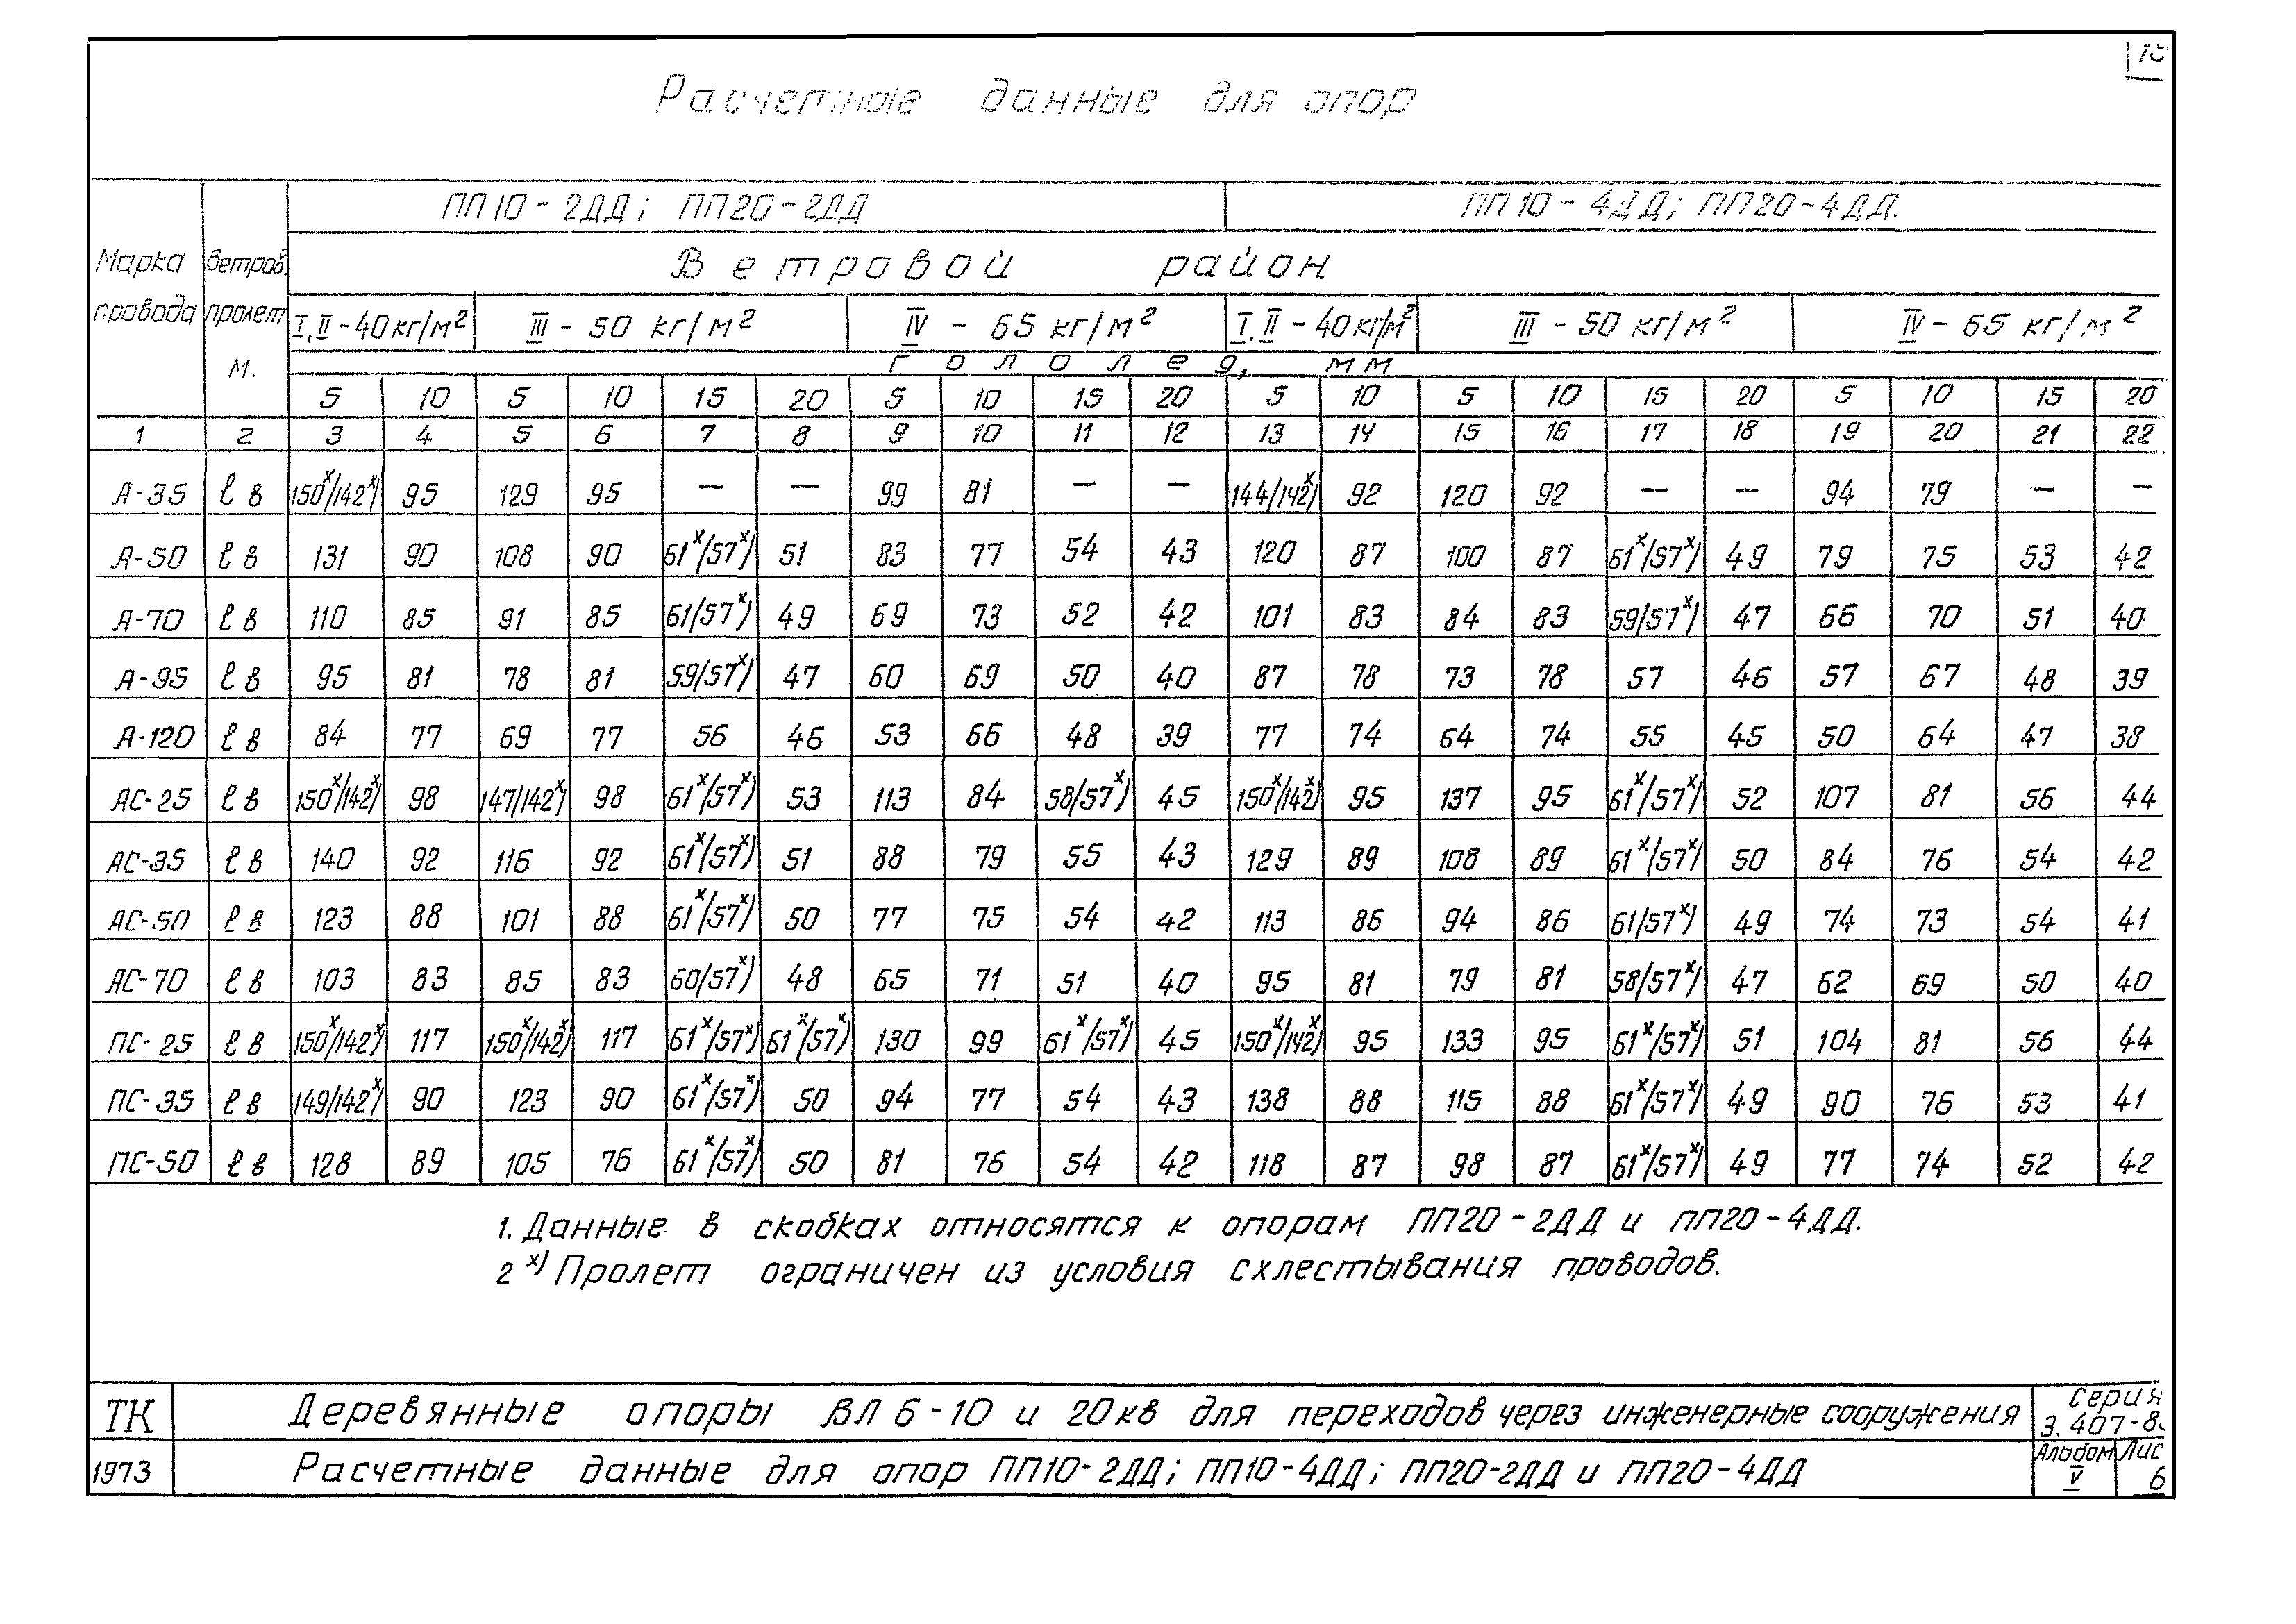 Расчетные данные для опор
Марка провода | Ветров. пролет м. | ПП10-2ДД; ПП20-2ДД | ПП10-4ДД; ПП20-4ДД.
Ветровой район
I, II-40кг/м² | III - 50 кг/м² | IV - 65 кг/м² | I. II-40кг/м² | III - 50 кг/м² | IV - 65 кг/м²
Гололед, мм
5 | 10 | 5 | 10 | 15 | 20 | 5 | 10 | 15 | 20 | 5 | 10 | 5 | 10 | 15 | 20 | 5 | 10 | 15 | 20
1 | 2 | 3 | 4 | 5 | 6 | 7 | 8 | 9 | 10 | 11 | 12 | 13 | 14 | 15 | 16 | 17 | 18 | 19 | 20 | 21 | 22
А-35 | ℓ в | 150ˣ/142ˣ) | 95 | 129 | 95 | — | — | 99 | 81 | — | — | 144/142ˣ) | 92 | 120 | 92 | — | — | 94 | 79 | — | —
А-50 | ℓ в | 131 | 90 | 108 | 90 | 61ˣ/57ˣ) | 51 | 83 | 77 | 54 | 43 | 120 | 87 | 100 | 87 | 61ˣ/57ˣ) | 49 | 79 | 75 | 53 | 42
А-70 | ℓ в | 110 | 85 | 91 | 85 | 61/57ˣ) | 49 | 69 | 73 | 52 | 42 | 101 | 83 | 84 | 83 | 59/57ˣ) | 47 | 66 | 70 | 51 | 40
А-95 | ℓ в | 95 | 81 | 78 | 81 | 59/57ˣ) | 47 | 60 | 69 | 50 | 40 | 87 | 78 | 73 | 78 | 57 | 46 | 57 | 67 | 48 | 39
А-120 | ℓ в | 84 | 77 | 69 | 77 | 56 | 46 | 53 | 66 | 48 | 39 | 77 | 74 | 64 | 74 | 55 | 45 | 50 | 64 | 47 | 38
АС-25 | ℓ в | 150ˣ/142ˣ) | 98 | 147/142ˣ) | 98 | 61ˣ/57ˣ) | 53 | 113 | 84 | 58/57ˣ) | 45 | 150ˣ/142ˣ) | 95 | 137 | 95 | 61ˣ/57ˣ) | 52 | 107 | 81 | 56 | 44
АС-35 | ℓ в | 140 | 92 | 116 | 92 | 61ˣ/57ˣ) | 51 | 88 | 79 | 55 | 43 | 129 | 89 | 108 | 89 | 61ˣ/57ˣ) | 50 | 84 | 76 | 54 | 42
АС-50 | ℓ в | 123 | 88 | 101 | 88 | 61ˣ/57ˣ) | 50 | 77 | 75 | 54 | 42 | 113 | 86 | 94 | 86 | 61/57ˣ) | 49 | 74 | 73 | 54 | 41
АС-70 | ℓ в | 103 | 83 | 85 | 83 | 60/57ˣ) | 48 | 65 | 71 | 51 | 40 | 95 | 81 | 79 | 81 | 58/57ˣ) | 47 | 62 | 69 | 50 | 40
ПС-25 | ℓ в | 150ˣ/142ˣ) | 117 | 150ˣ/142ˣ) | 117 | 61ˣ/57ˣ) | 61ˣ/57ˣ) | 130 | 99 | 61ˣ/57ˣ) | 45 | 150ˣ/142ˣ) | 95 | 133 | 95 | 61ˣ/57ˣ) | 51 | 104 | 81 | 56 | 44
ПС-35 | ℓ в | 149/142ˣ) | 90 | 123 | 90 | 61ˣ/57ˣ) | 50 | 94 | 77 | 54 | 43 | 138 | 88 | 115 | 88 | 61ˣ/57ˣ) | 49 | 90 | 76 | 53 | 41
ПС-50 | ℓ в | 128 | 89 | 105 | 76 | 61ˣ/57ˣ) | 50 | 81 | 76 | 54 | 42 | 118 | 87 | 98 | 87 | 61ˣ/57ˣ) | 49 | 77 | 74 | 52 | 42
1. Данные в скобках относятся к опорам ПП20-2ДД и ПП20-4ДД.
2 ˣ⁾ Пролет ограничен из условия схлестывания проводов.
ТК | Деревянные опоры ВЛ 6-10 и 20кв для переходов через инженерные сооружения | Серия 3.407-8
1973 | Расчетные данные для опор ПП10-2ДД; ПП10-4ДД; ПП20-2ДД и ПП20-4ДД | Альбом V | Лис 6